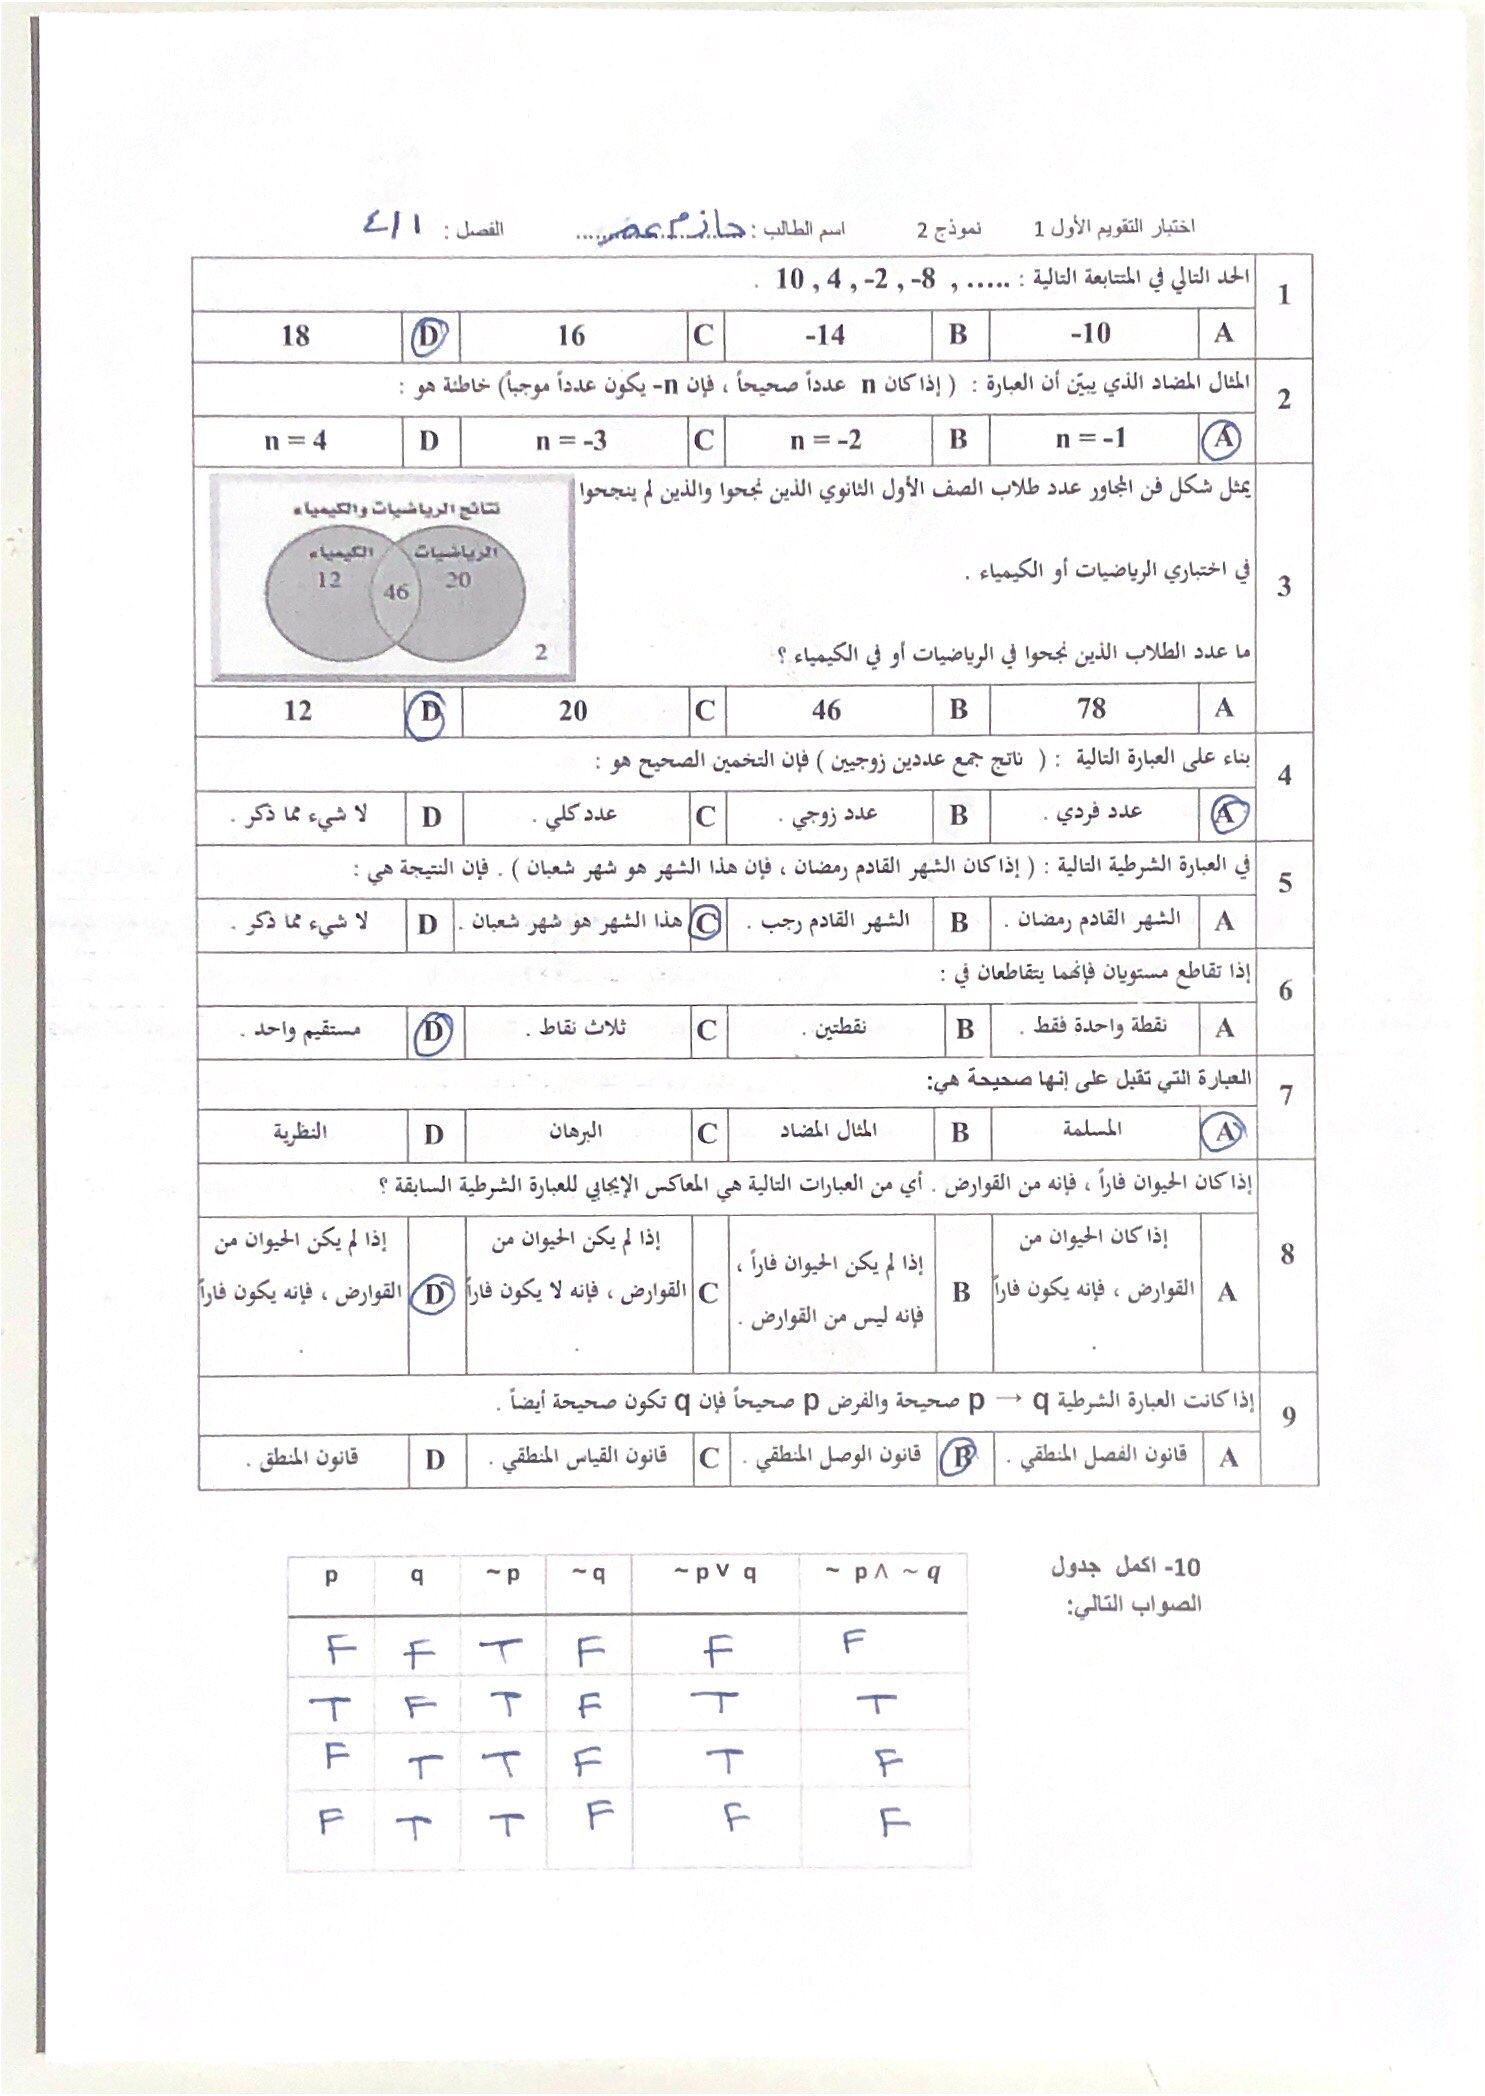 اختبار التقويم الأول 1 نموذج 2 اسم الطالب : حازم عمر الفصل : ٤/١
1 الحد التالي في المتتابعة التالية : 10 , 4 , -2 , -8 , ..... .
A -10 B -14 C 16 D 18
2 المثال المضاد الذي يبيّن أن العبارة : ( إذا كان n عدداً صحيحاً ، فإن n- يكون عدداً موجباً) خاطئة هو :
A n = -1 B n = -2 C n = -3 D n = 4
3 يمثل شكل فن المجاور عدد طلاب الصف الأول الثانوي الذين نجحوا والذين لم ينجحوا
في اختباري الرياضيات أو الكيمياء .
ما عدد الطلاب الذين نجحوا في الرياضيات أو في الكيمياء ؟
نتائج الرياضيات والكيمياء
الرياضيات الكيمياء
20 46 12
2
A 78 B 46 C 20 D 12
4 بناء على العبارة التالية : ( ناتج جمع عددين زوجيين ) فإن التخمين الصحيح هو :
A عدد فردي . B عدد زوجي . C عدد كلي . D لا شيء مما ذكر .
5 في العبارة الشرطية التالية : ( إذا كان الشهر القادم رمضان ، فإن هذا الشهر هو شهر شعبان ) . فإن النتيجة هي :
A الشهر القادم رمضان . B الشهر القادم رجب . C هذا الشهر هو شهر شعبان . D لا شيء مما ذكر .
6 إذا تقاطع مستويان فإنهما يتقاطعان في :
A نقطة واحدة فقط . B نقطتين . C ثلاث نقاط . D مستقيم واحد .
7 العبارة التي تقبل على إنها صحيحة هي:
A المسلمة B المثال المضاد C البرهان D النظرية
8 إذا كان الحيوان فاراً ، فإنه من القوارض . أي من العبارات التالية هي المعاكس الإيجابي للعبارة الشرطية السابقة ؟
A إذا كان الحيوان من
القوارض ، فإنه يكون فاراً
.
B إذا لم يكن الحيوان فاراً ،
فإنه ليس من القوارض .
C إذا لم يكن الحيوان من
القوارض ، فإنه لا يكون فاراً
.
D إذا لم يكن الحيوان من
القوارض ، فإنه يكون فاراً
.
9 إذا كانت العبارة الشرطية p → q صحيحة والفرض p صحيحاً فإن q تكون صحيحة أيضاً .
A قانون الفصل المنطقي . B قانون الوصل المنطقي . C قانون القياس المنطقي . D قانون المنطق .
10- اكمل جدول
الصواب التالي:
p q ~p ~q ~p ∨ q ~ p ∧ ~ q
F F T F F F
T F T F T T
F T T F T F
F T T F F F